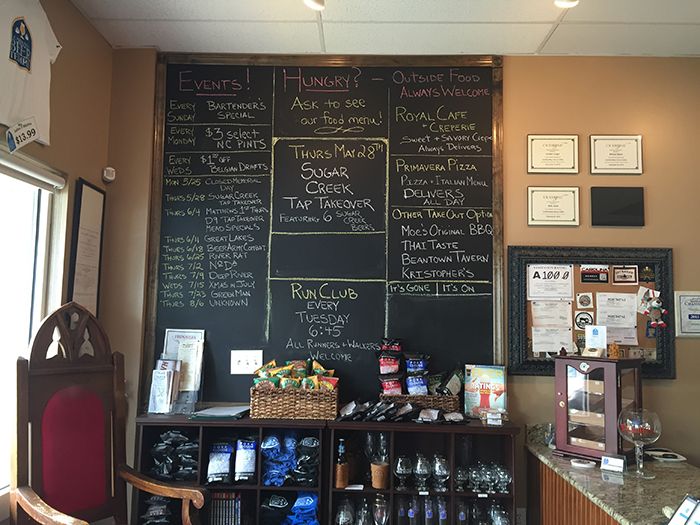 $13.99
EVENTS!
EVERY SUNDAY
BARTENDERS SPECIAL
EVERY MONDAY
$3 SELECT NC PINTS
EVERY WEDS
$1 OFF BELGIAN DRAFTS
MON 5/25 CLOSED MEMORIAL DAY
THURS 5/28 SUGAR CREEK TAP TAKEOVER
THURS 6/4
D9 TAP TAKEOVER
MEAD SPECIALS
THURS 6/11 GREAT LAKES
THURS 6/18 BEER ARMY COMBAT
THURS 6/25 RIVER RAT
THURS 7/2 NODA
THURS 7/9 DEEP RIVER
WEDS 7/15 XMAS IN JULY
THURS 7/23 GREEN MAN
THURS 8/6 UNKNOWN
HUNGRY? -
ASK TO SEE
OUR FOOD MENU!
THURS MAY 28TH
SUGAR
CREEK
TAP TAKEOVER
FEATURING 6 SUGAR CREEK BEERS
RUN CLUB
EVERY
TUESDAY
6:45
ALL RUNNERS + WALKERS
WELCOME
OUTSIDE FOOD
ALWAYS WELCOME
ROYAL CAFE
+ CREPERIE
SWEET + SAVORY CREPE
ALWAYS DELIVERS
PRIMAVERA PIZZA
PIZZA + ITALIAN MENU
DELIVERS
ALL DAY
OTHER TAKE OUT OPTION
MOE'S ORIGINAL BBQ
THAI TASTE
BEANTOWN TAVERN
KRISTOPHER'S
IT'S GONE IT'S ON
A 100.0